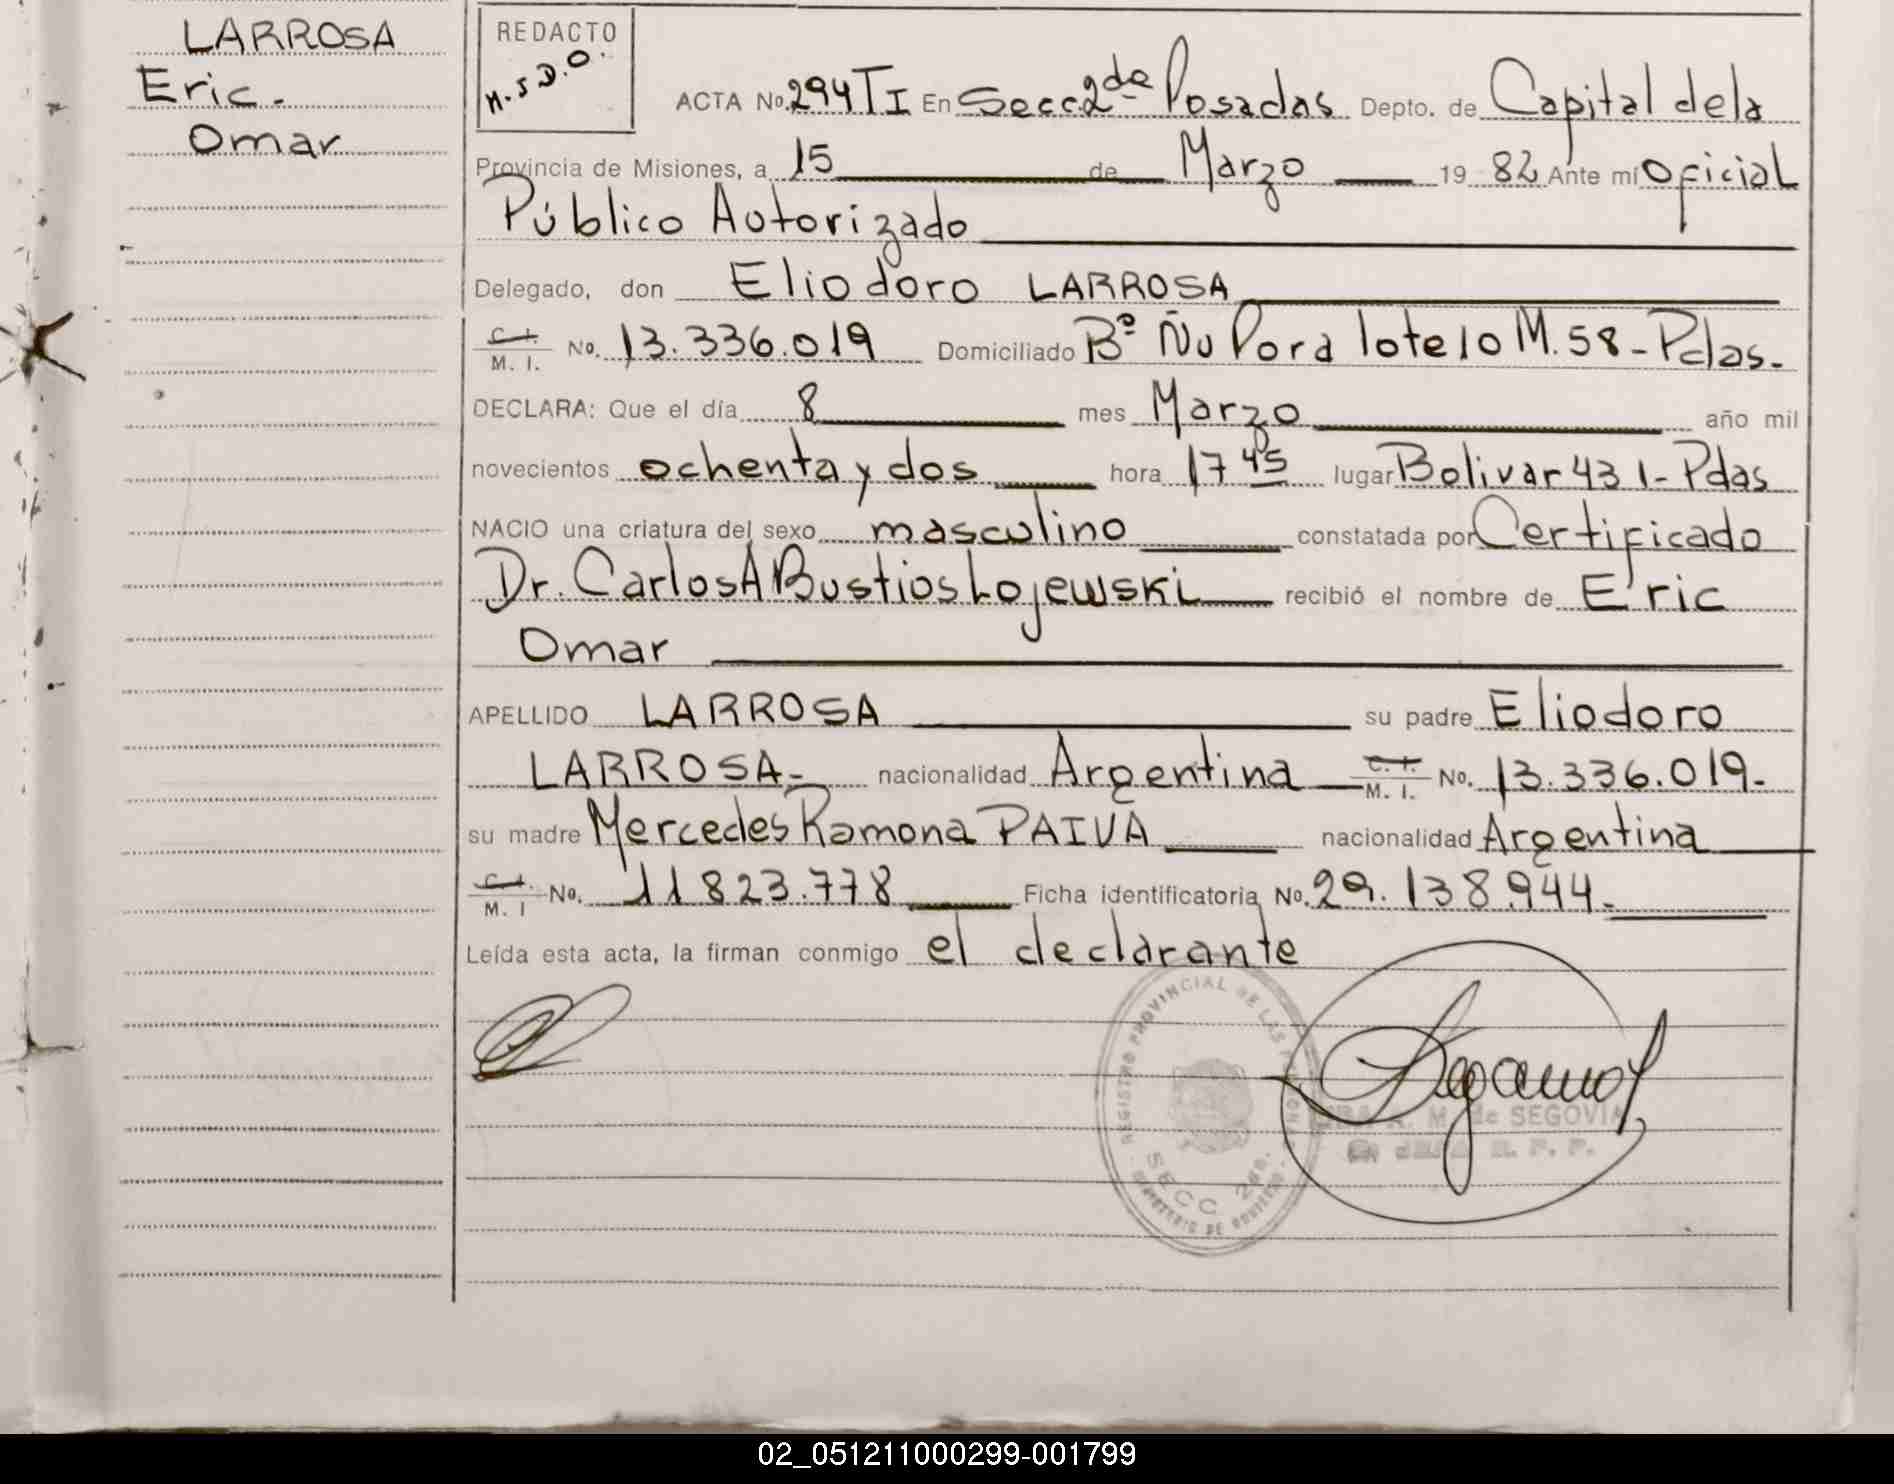 LARROSA
Eric.
Omar
REDACTO
M.S D.O.
ACTA No. 294 TI En Secc. 2da Posadas Depto. de Capital de la
Provincia de Misiones, a 15 de Marzo 19 82 Ante mí Oficial
Público Autorizado
Delegado, don Eliodoro LARROSA
C. I. / M. I. No. 13.336.019 Domiciliado Bº Ñu Pora lote 10 M. 58 - Pdas.
DECLARA: Que el día 8 mes Marzo año mil
novecientos ochenta y dos hora 17 45 lugar Bolivar 431 - Pdas
NACIO una criatura del sexo masculino constatada por Certificado
Dr. Carlos A Bustios Lojewski recibió el nombre de Eric
Omar
APELLIDO LARROSA su padre Eliodoro
LARROSA - nacionalidad Argentina C. I. / M. I. No. 13.336.019-
su madre Mercedes Ramona PAIVA nacionalidad Argentina
C. I. / M. I No. 11823.778 Ficha identificatoria No. 29.138.944-
Leída esta acta, la firman conmigo el declarante
REGISTRO PROVINCIAL DE LAS PERSONAS
SECC 2da.
MINISTERIO DE GOBIERNO
M. de SEGOVIA
R. P. P.
02_051211000299-001799